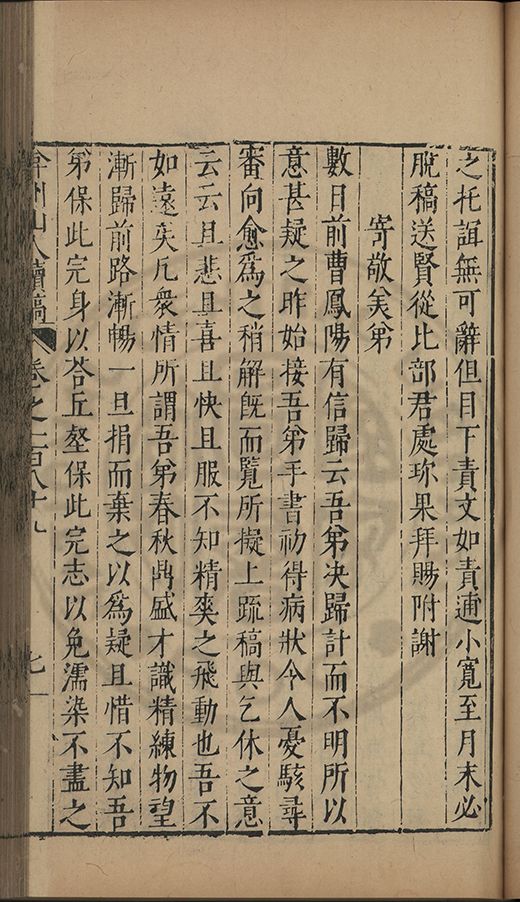 之托誼無可辭但目下責文如責逋小寬至月末必
脫稿送賢從比部君處珎果拜賜附謝
寄敬美弟
數日前曹鳳陽有信歸云吾弟决歸計而不明所以
意甚疑之昨始接吾弟手書初得病狀令人憂駭尋
審向愈爲之稍解旣而覽所擬上䟽稿與乞休之意
云云且悲且喜且快且服不知精爽之飛動也吾不
如遠矣凡衆情所謂吾弟春秋鼎盛才識精練物望
漸歸前路漸暢一旦捐而棄之以爲疑且惜不知吾
弟保此完身以荅丘壑保此完志以免濡染不盡之
弇州山人續稿 卷之一百八十九 七